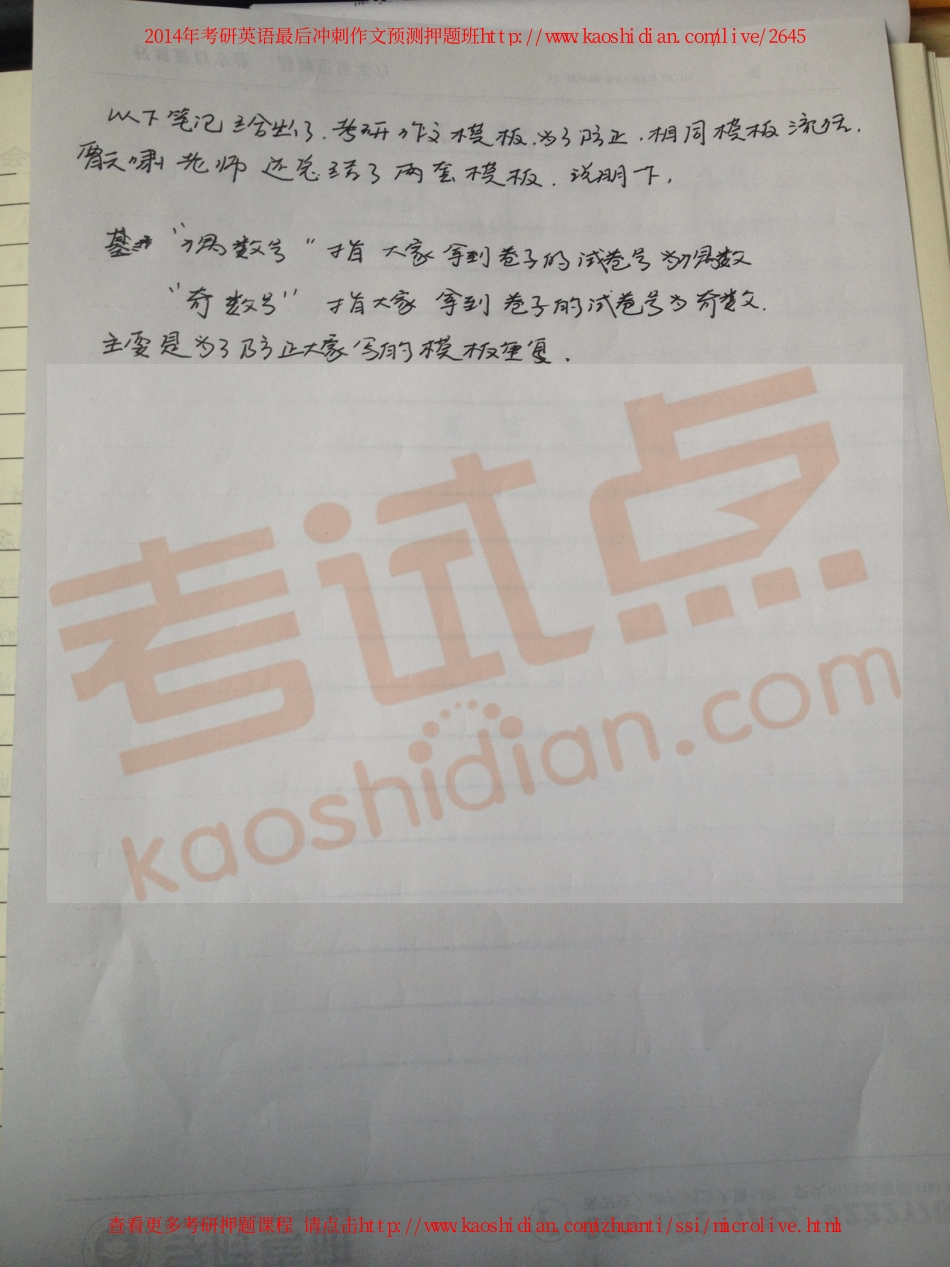 2014年考研英语最后冲刺作文预测押题班http://www.kaoshidian.com/live/2645
以下笔记给出了.考研作文模板.为了防止.相同模板流传.
老师 还总结了两套模板.说明下,
"偶数号" 指 大家拿到卷子的试卷号为偶数
"奇数号" 指大家 拿到 卷子的试卷号为奇数.
主要是为了防止大家写的模板重复.
考试点
kaoshidian.com
查看更多考研押题课程 请点击http://www.kaoshidian.com/zhuanti/ssi/microlive.html